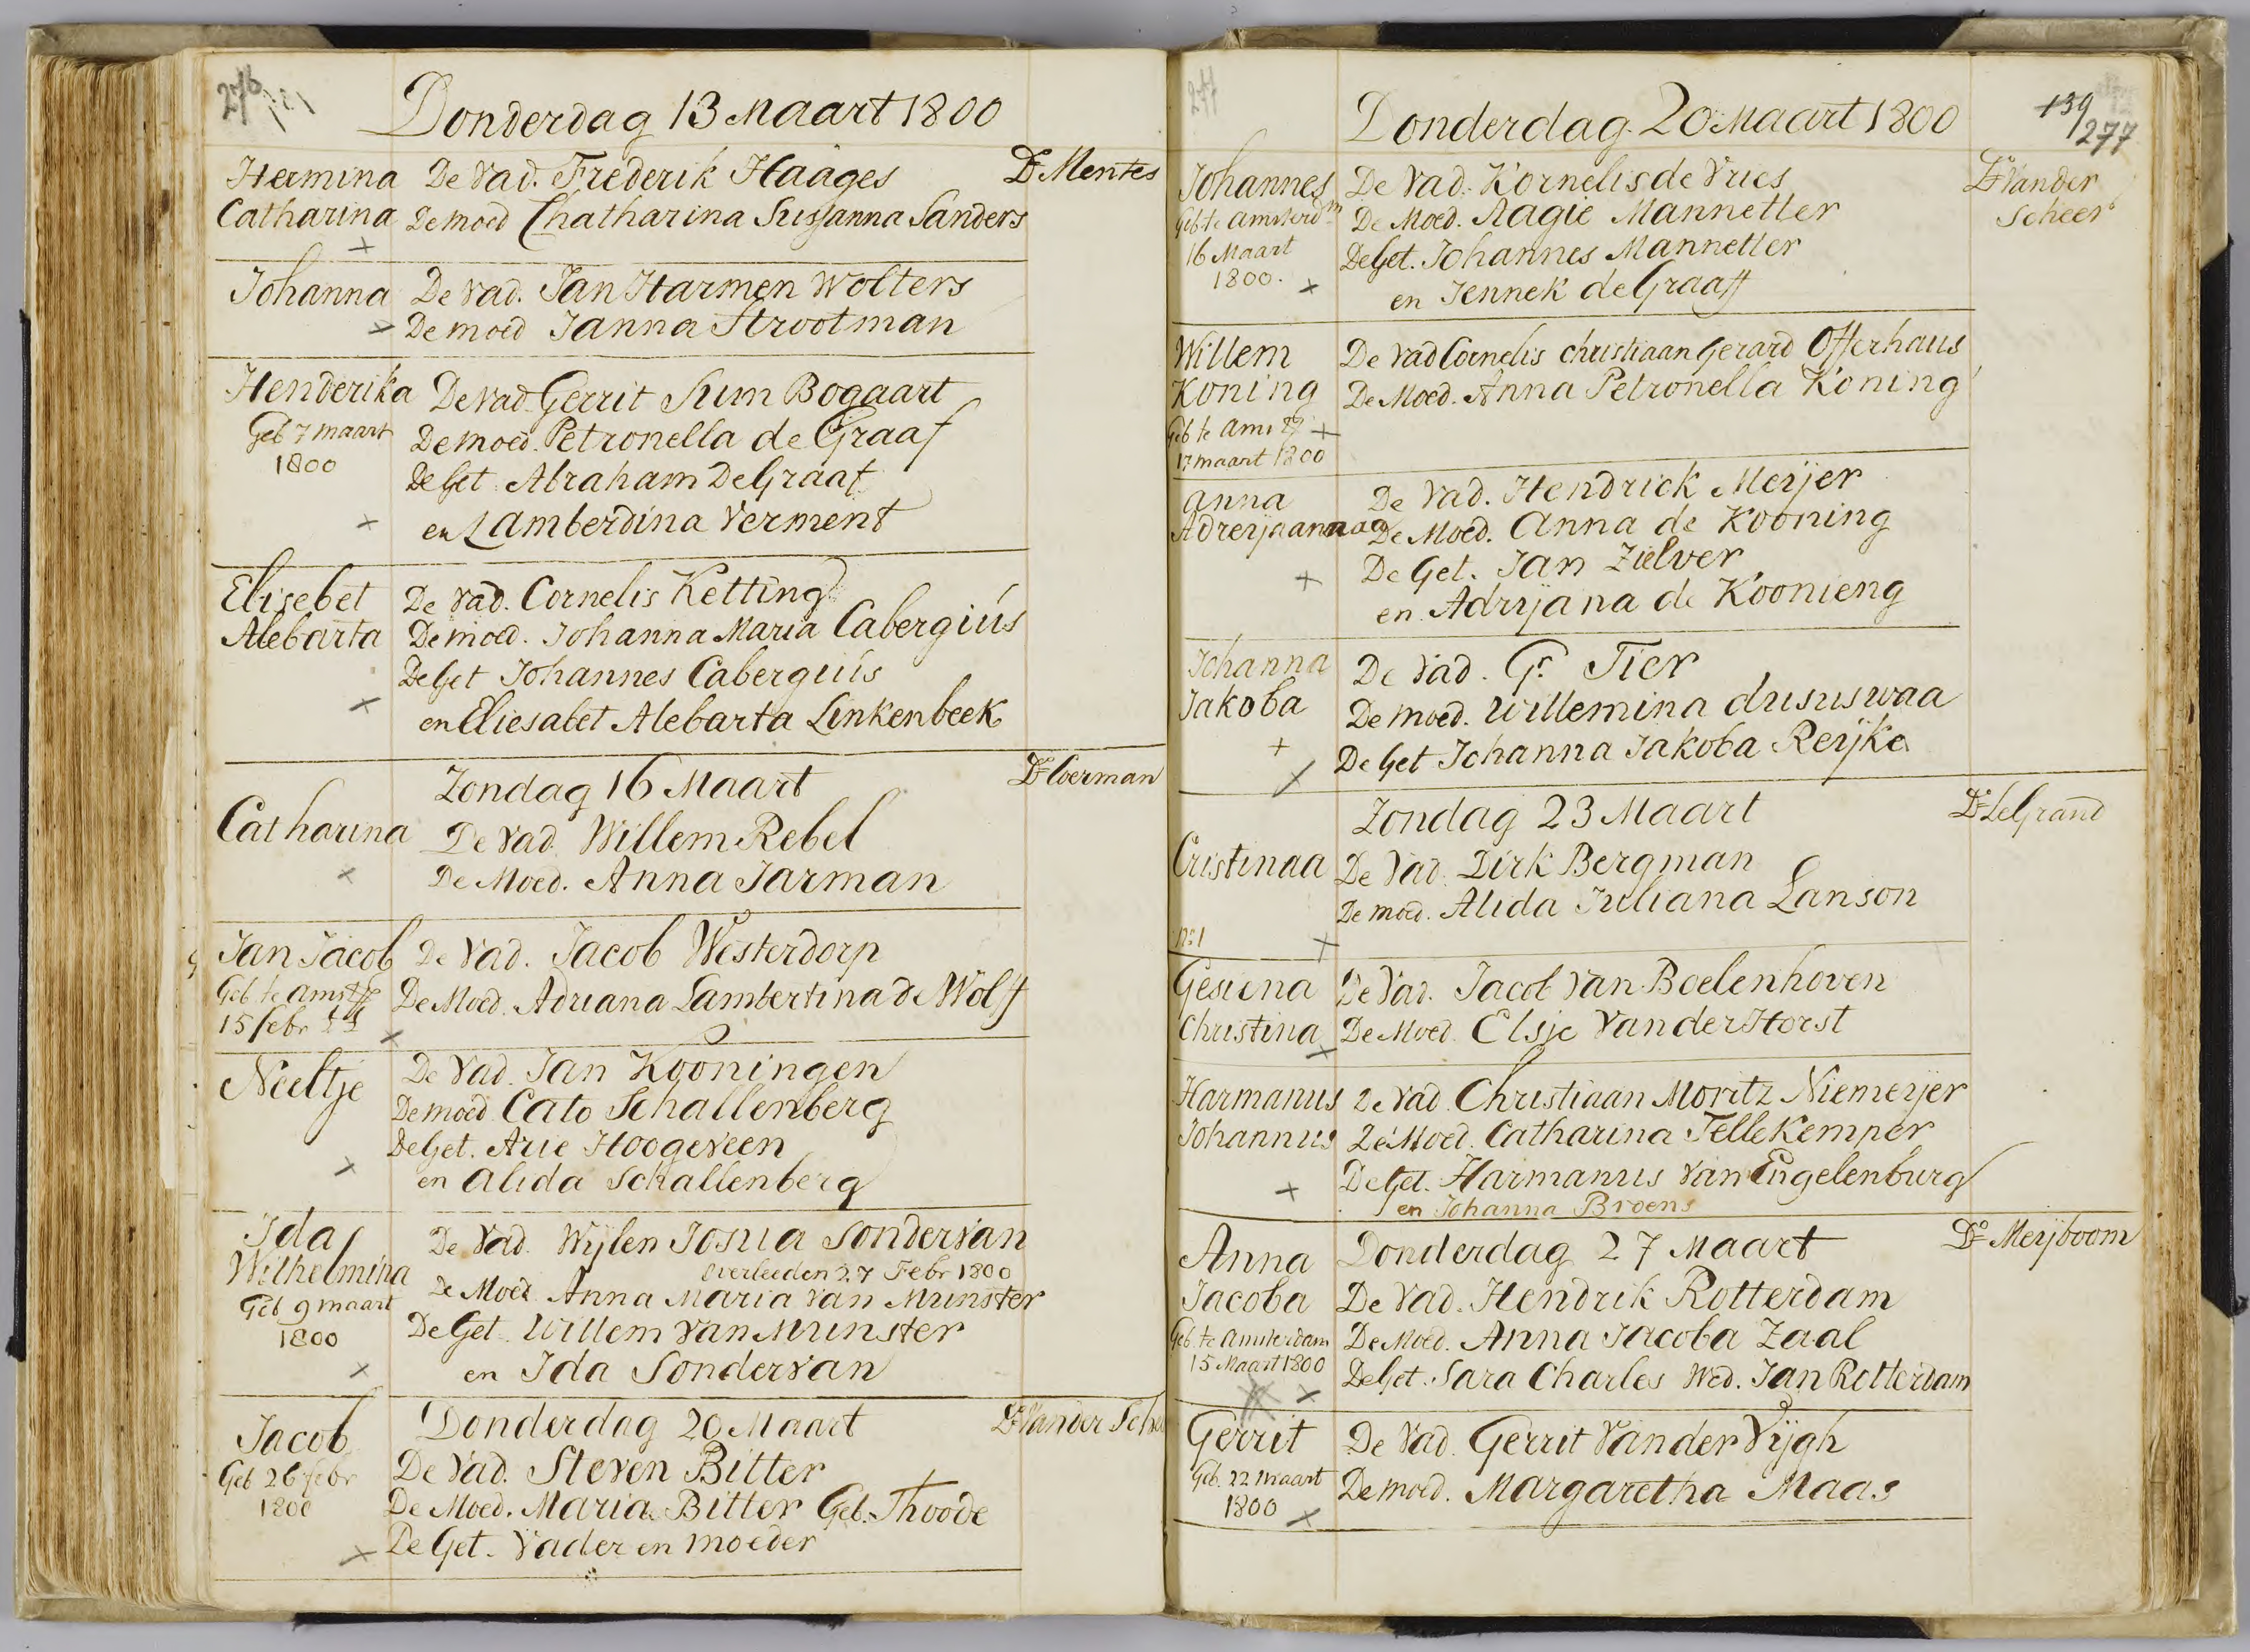 276
Donderdag 13 Maart 1800
Hermina De Vad. Frederik Haäges Ds. Mentes
Catharina De moed Chatharina Susanna Sanders
Johanna De Vad. Jan Harmen Wolters
De moed Janna Strootman
Henderika De Vad. Gerrit Sum Bogaart
Geb 7 maart De moed. Petronella de Graaf
1800 De Get. Abraham De Graaf
en Lamberdina Verment
Elisebet De Vad. Cornelis Ketting
Alebarta De moed. Johanna Maria Cabergiús
De Get Johannes Cabergiús
en Eliesabet Alebarta Linkenbeek
Zondag 16 Maart Ds. Coerman
Catharina De Vad. Willem Rebel
De Moed. Anna Jarman
Jan Jacob De Vad. Jacob Westerdorp
Geb. te Amst De Moed. Adriana Lambertina de Wolff
15 febr
Neeltje De Vad. Jan Kooningen
De moed Cato Schallenberg
De Get. Arie Hoogeveen
en Alida Schallenberg
Ida De Vad. Wijlen Josua Sondervan
Wilhelmina overleeden 27 Febr 1800
Geb 9 maart De Moed. Anna Maria van Munster
1800 De Get. Willem van Munster
en Ida Sondervan
Donderdag 20 Maart Ds. Vander Sche
Jacob De Vad. Steven Bitter
Geb 26 febr De Moed. Maria Bitter Geb. Thoode
1800 De Get. Vader en moeder
277
139
277
Donderdag 20 Maart 1800
Johannes De Vad. Kornelis de Vries Ds. Vander
Geb te Amsterdm De Moed. Aagie Mannetter Scheer
16 Maart De Get. Johannes Mannetter
1800. en Jennek de Graaff
Willem De Vad Cornelis Christiaan Gerard Offerhaus
Koning De Moed. Anna Petronella Koning
Geb te Ams
17 maart 1800
Anna De Vad. Hendrick Meijer
Adreyaanna De Moed. Anna de Kooning
De Get. Jan Zielver
en Adryana de Koonieng
Johanna De Vad. Gr. Tier
Jakoba De moed. Willemina dususwaa
De Get Johanna Jakoba Reijke
Zondag 23 Maart Ds. LeGrand
Cristinaa De Vad. Dirk Bergman
De moed. Alida Juliana Lanson
No. 1
Gesiena De Vad. Jacob van Boelenhoven
Christina De Moed. Elsje Vander Horst
Harmanus De Vad. Christiaan Moritz Niemeijer
Johannus De Moed. Catharina Tellekemper
De Get. Harmanus van Engelenburg
en Johanna Broens
Anna Donderdag 27 Maart Ds. Meijboom
Jacoba De Vad. Hendrik Rotterdam
Geb. te Amsterdam De Moed. Anna Jacoba Zaal
15 Maart 1800 De Get. Sara Charles Wed. Jan Rotterdam
Gerrit De Vad. Gerrit Vander Vijgh
Geb. 22 maart De moed. Margaretha Maas
1800